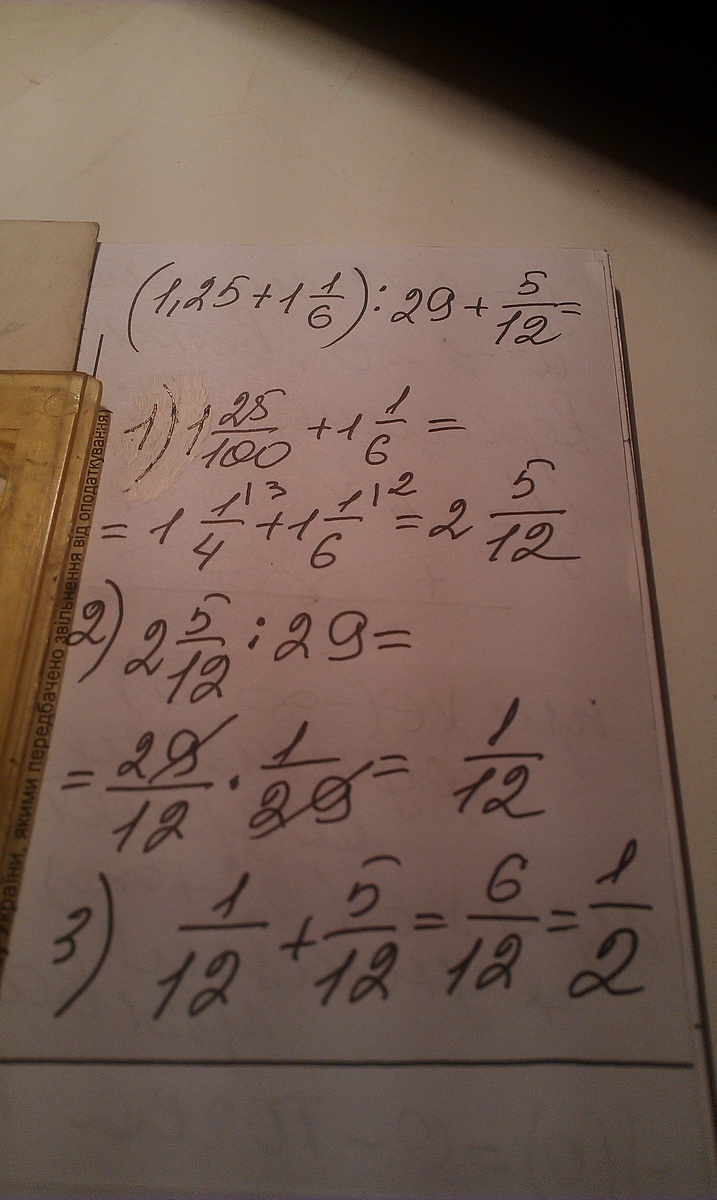 (1,25+1 1/6):29+5/12=
1) 1 25/100 +1 1/6 =
= 1 1/4 |3 +1 1/6 |2 = 2 5/12
2) 2 5/12 : 29=
= 29/12 · 1/29 = 1/12
3) 1/12 + 5/12 = 6/12 = 1/2
України, якими передбачено звільнення від оподаткування)